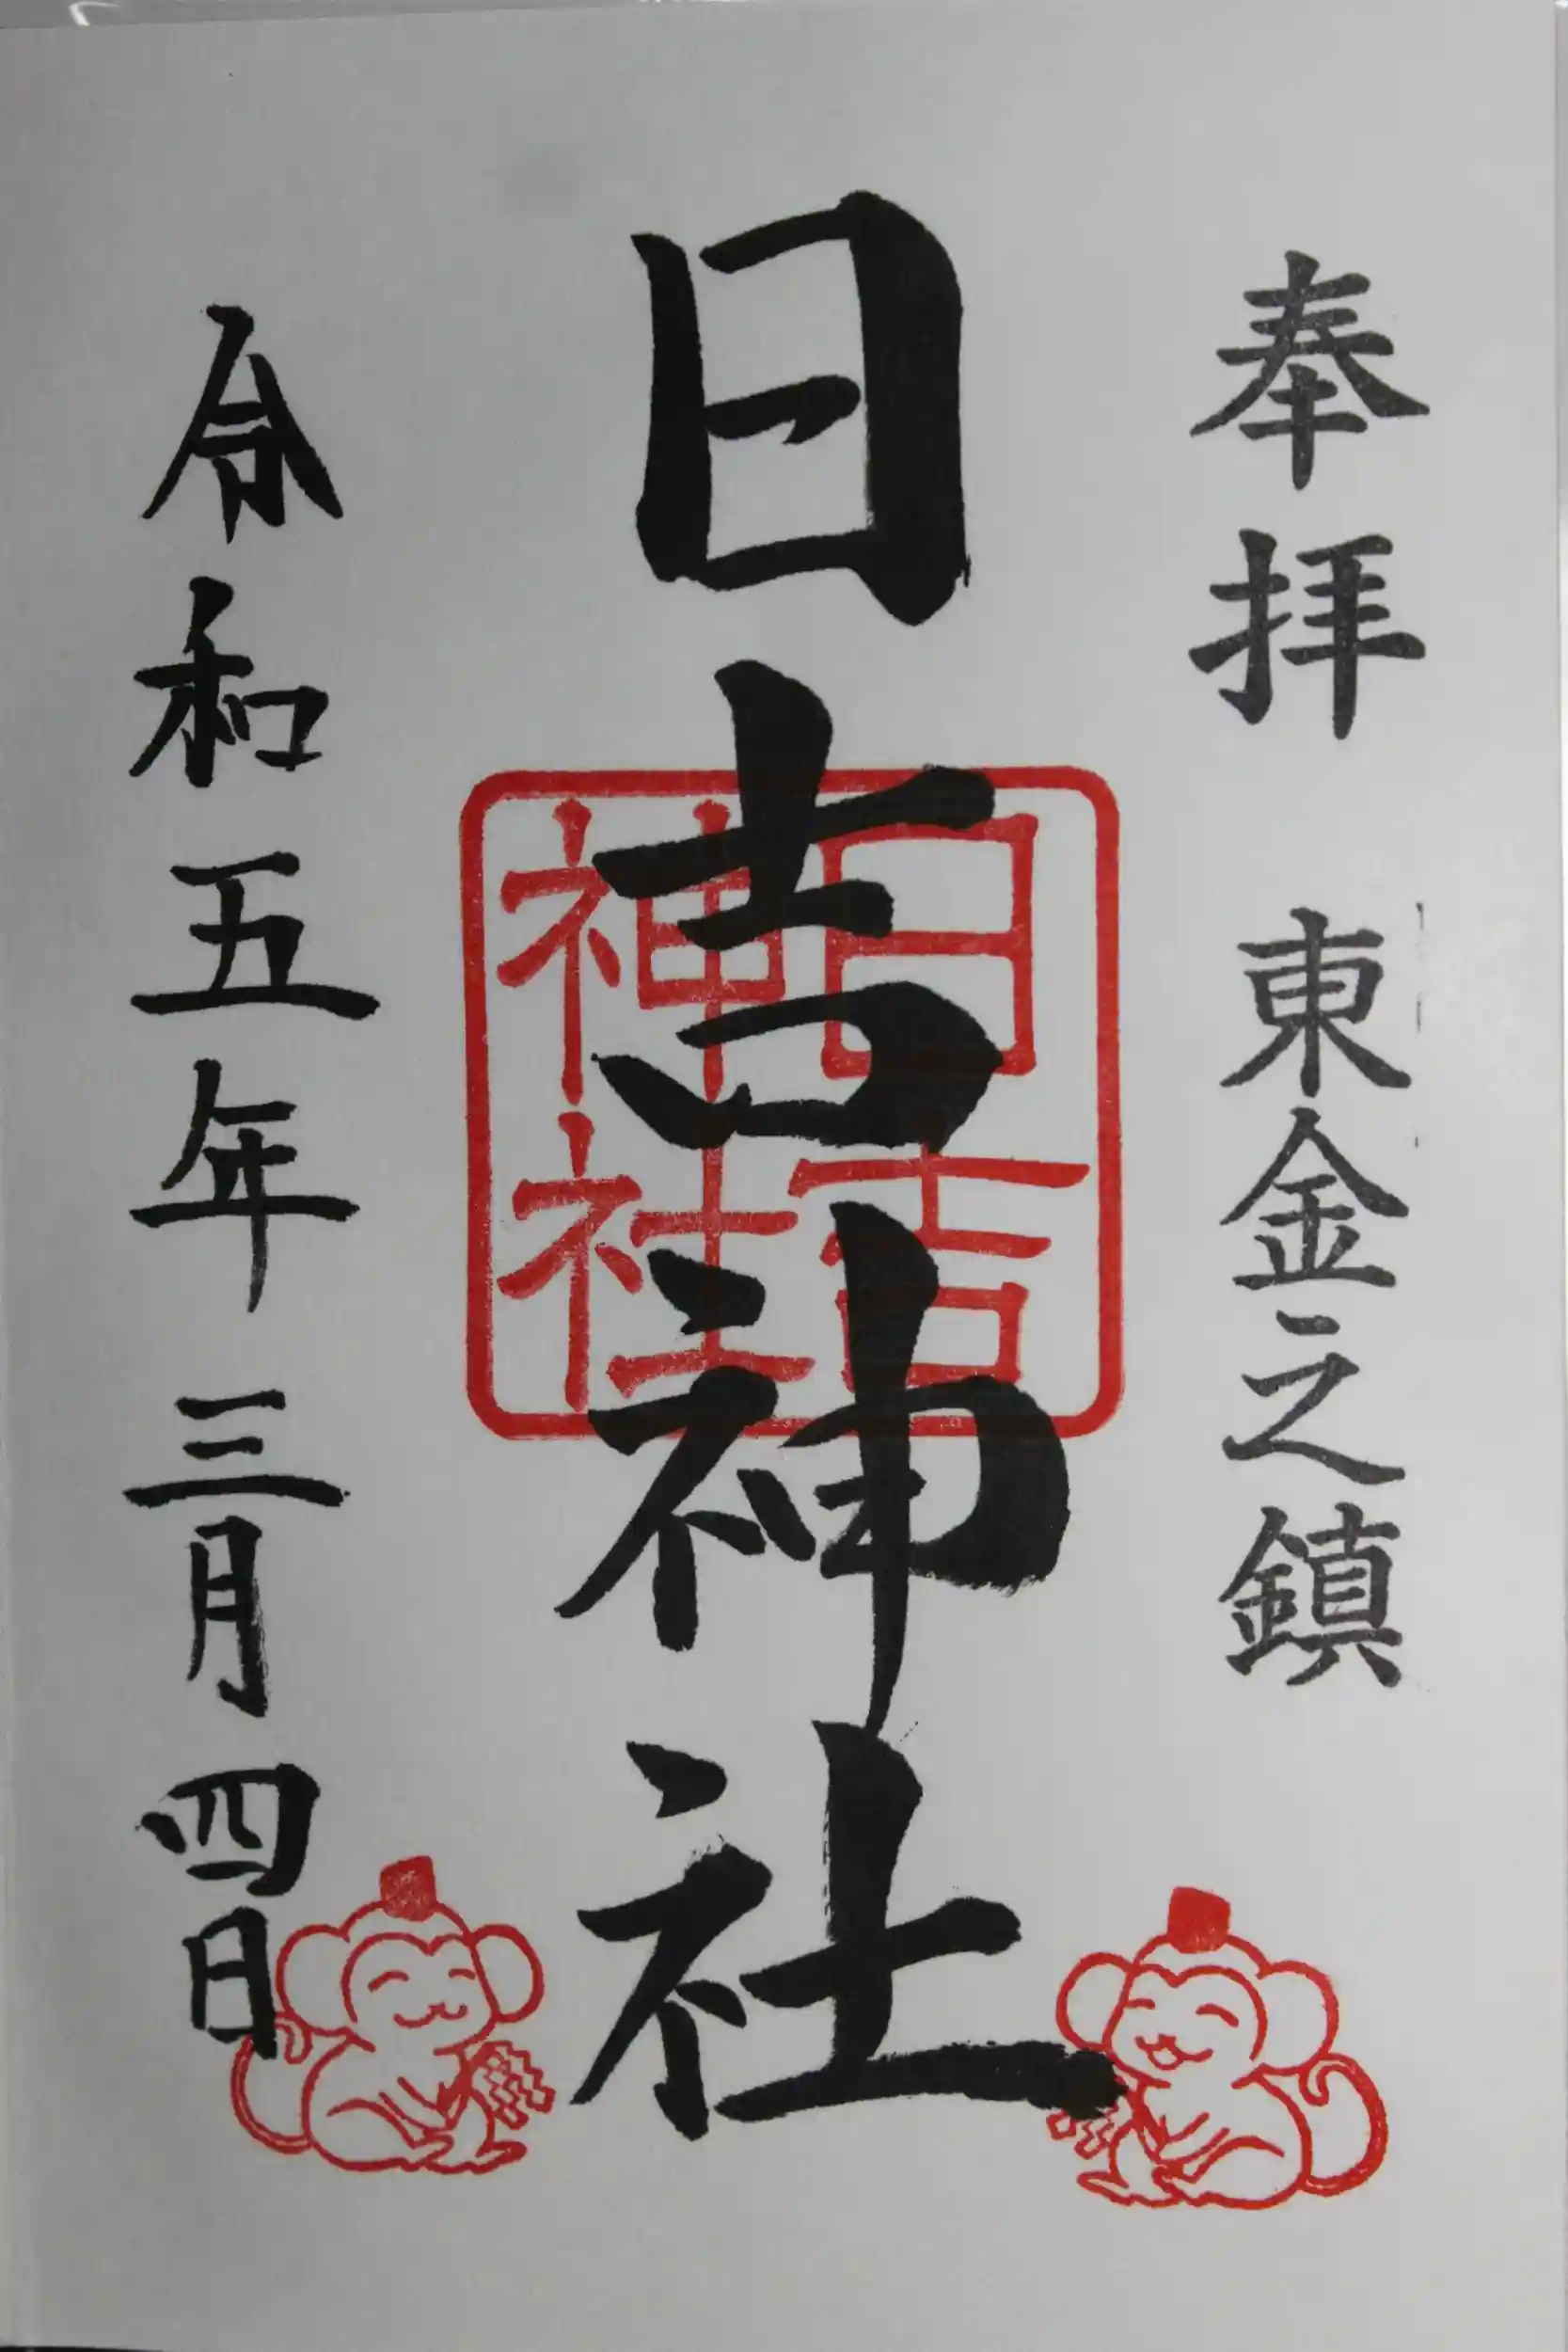 奉拝 東金之鎮
日吉神社
日吉
神社
令和五年三月四日